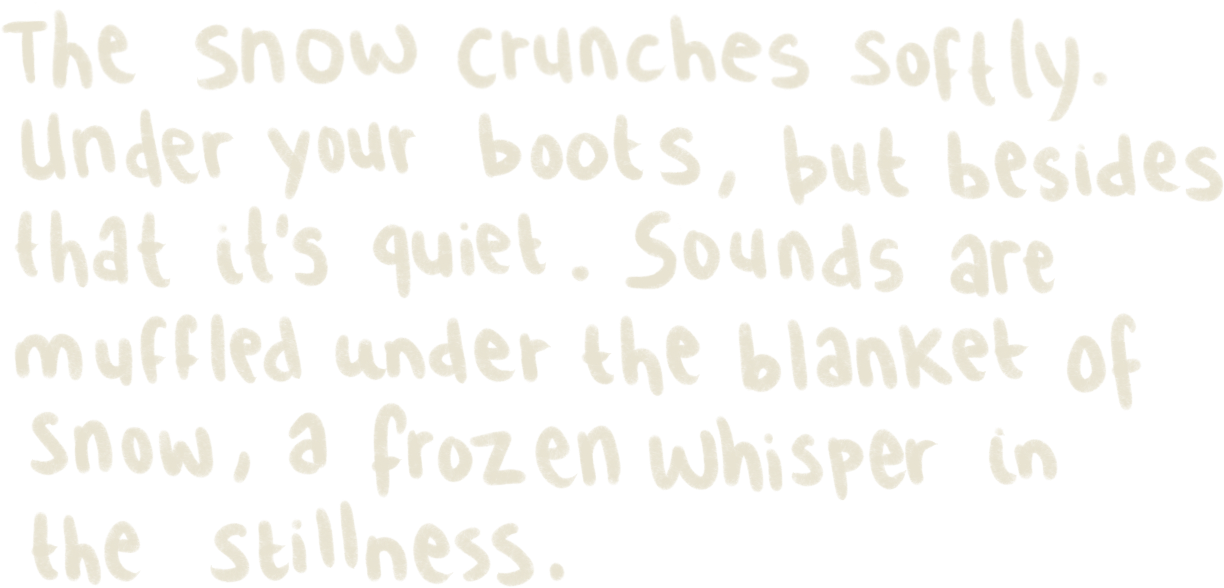 The snow crunches softly.
Under your boots, but besides
that it's quiet. Sounds are
muffled under the blanket of
snow, a frozen whisper in
the stillness.